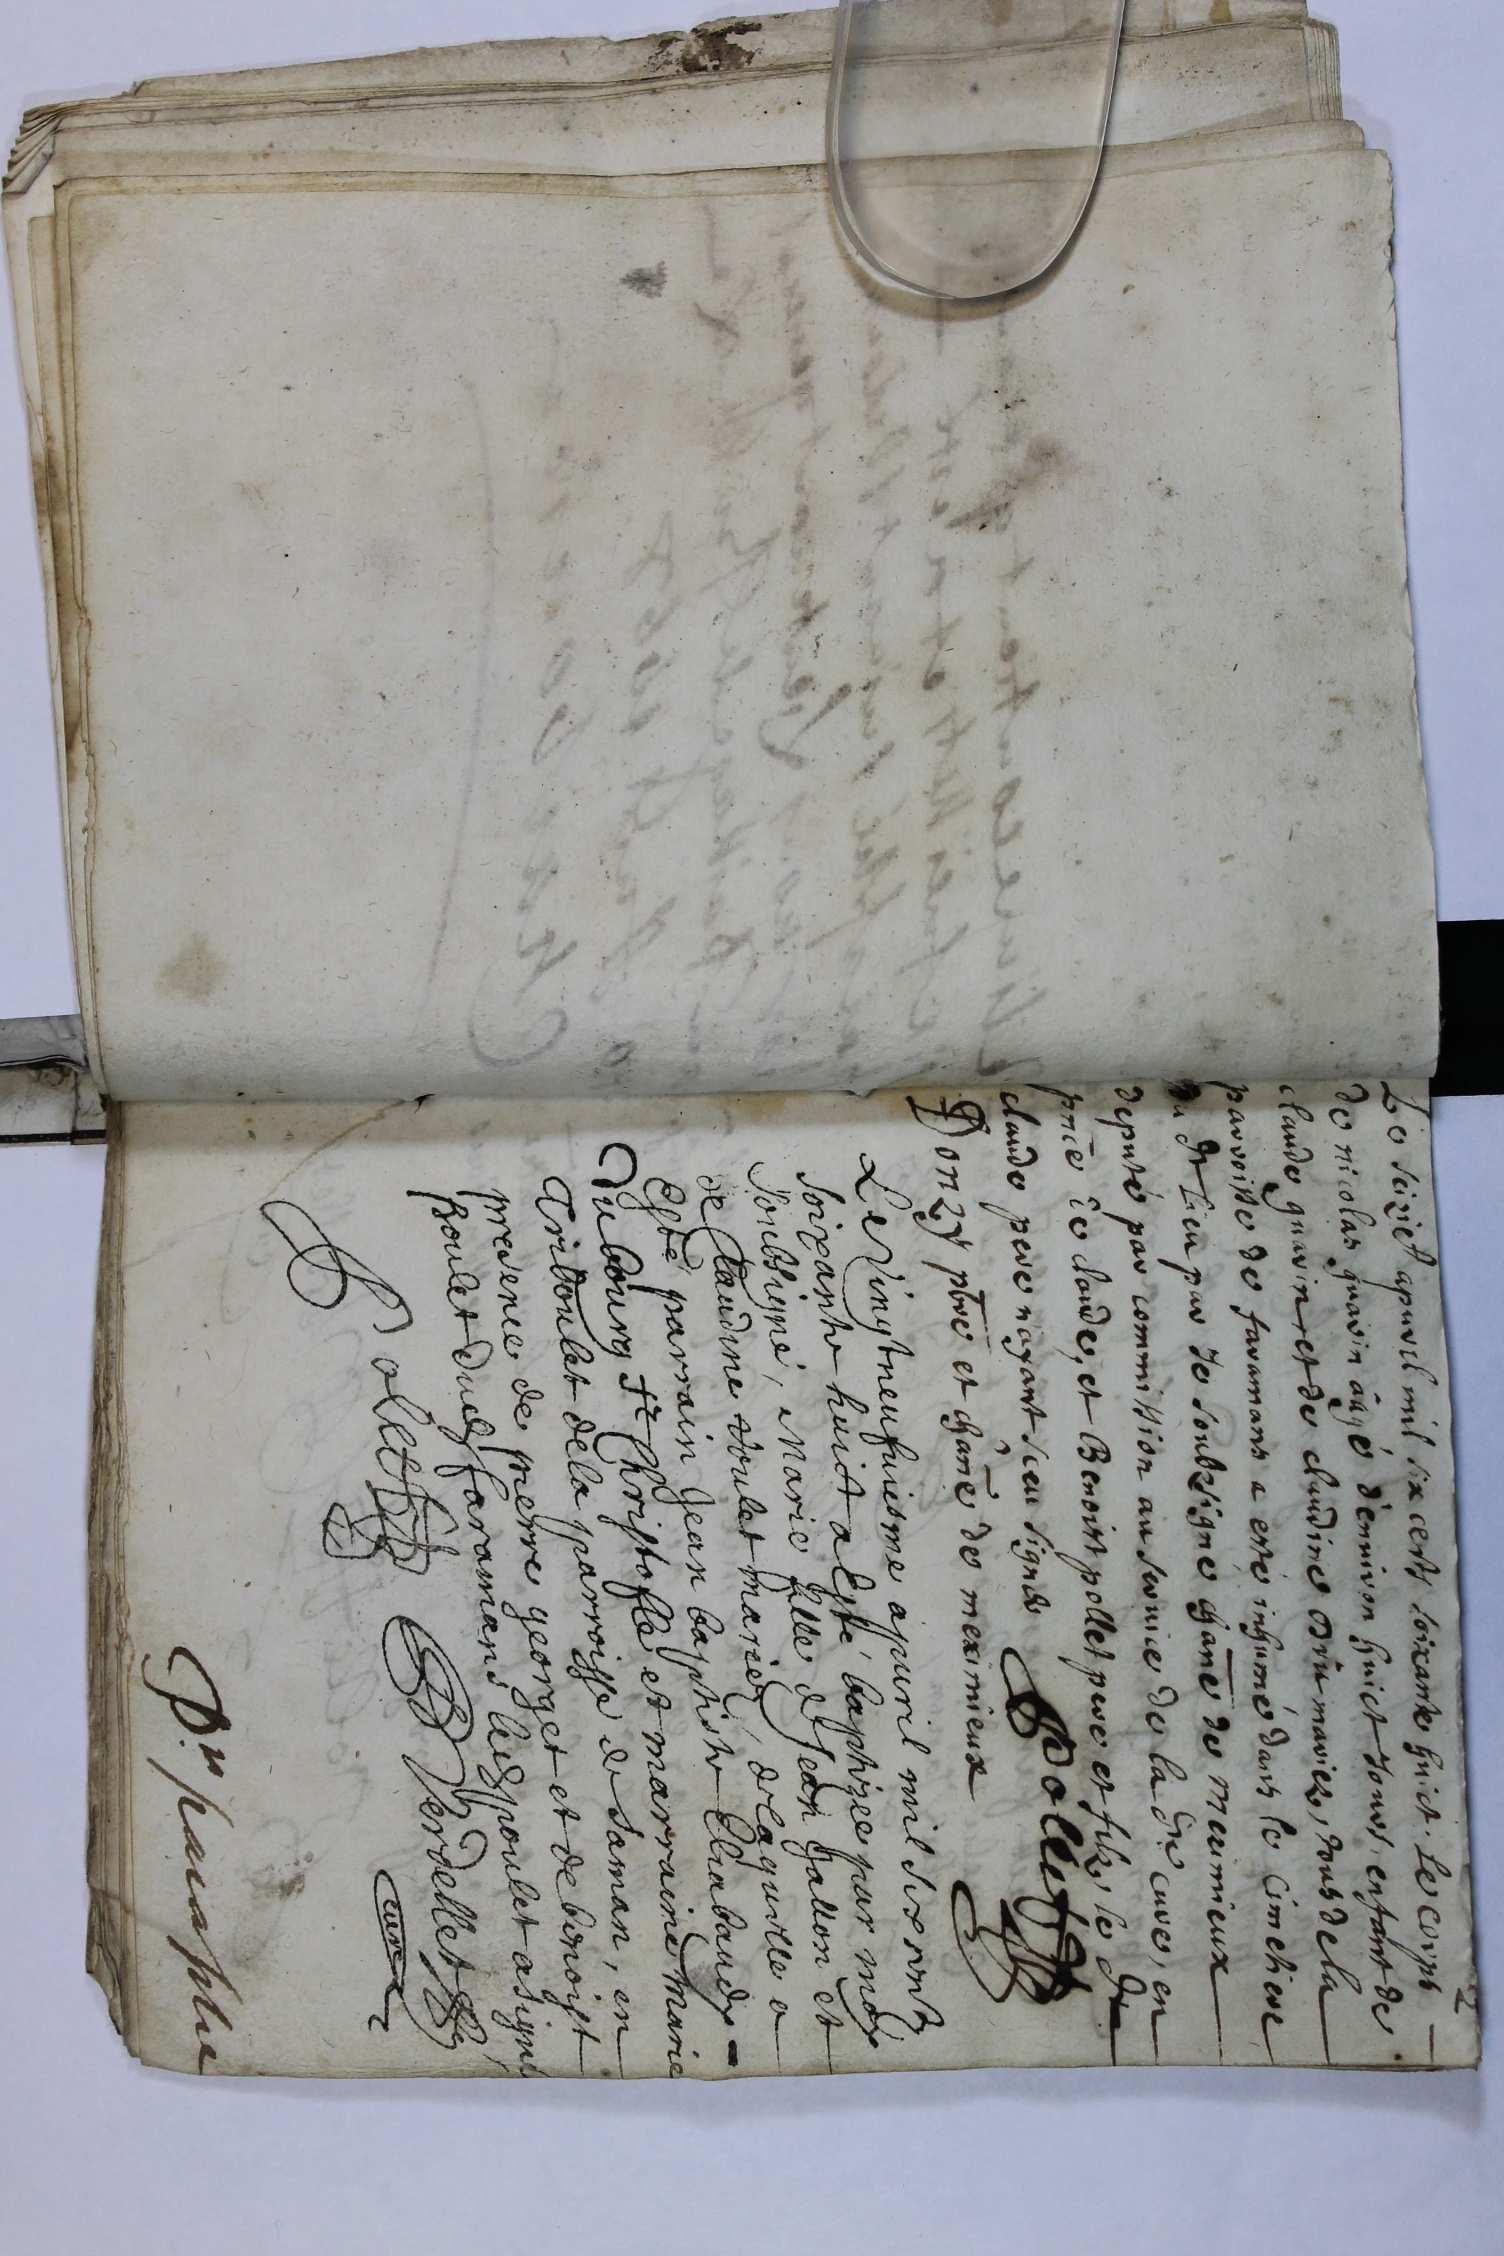 2
Le seizie apuril mil six cents soixante huict. Le corps
de nicolas guarin âgé d'enuiron huict Jours, enfant de
claude guarin et de claudine mariez, tous de la
parroisse de faramans a esté inhumé dans le cimetiere
du dt lieu par Je soubsigné chãne de meximieux
deputé par commission au seruice de la dte cure, en
pñce de claude, et Benoist pollet pere et filz, le dt
claude pere n'ayant sceu signer
Pollet
Donzy pbre et chãne de meximieux
Le Vingtneufuiesme apuril mil six cents
soixante huict a esté baptizee par moy
soubsigné, Marie fille de Jean Gallon et
de Claudine roulet mariez, de laquelle a
esté parrain Jean baptiste Chabaudy
dubourg st Christofle et marraine Marie
Triboulet de la parroisse de Saman, en
presence de pierre georget et de benoist
poulet dud faramans led poulet a signé
Pollet
Verdellet
curé
Pr. paraphe